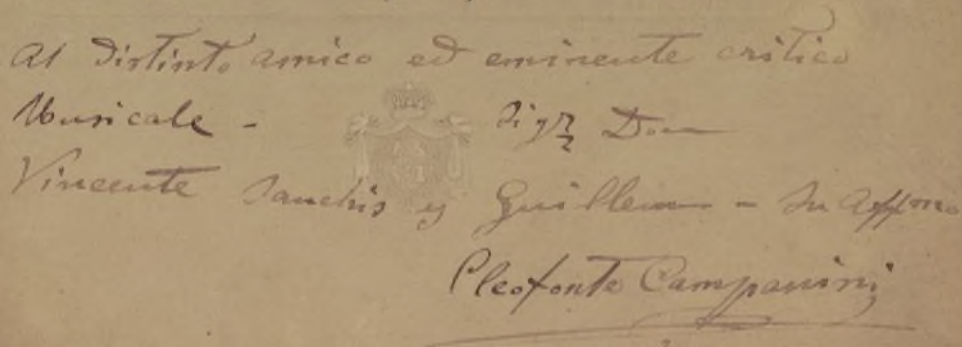 Al distinto amico ed eminente critico
Musicale - Sigr Don
Vincente Sanchis y Guillem - Su Affmo
Cleofonte Campanini